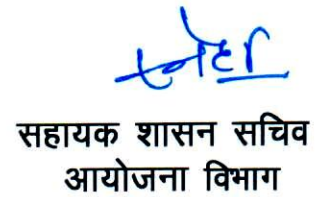 स्नेहा
सहायक शासन सचिव
आयोजना विभाग